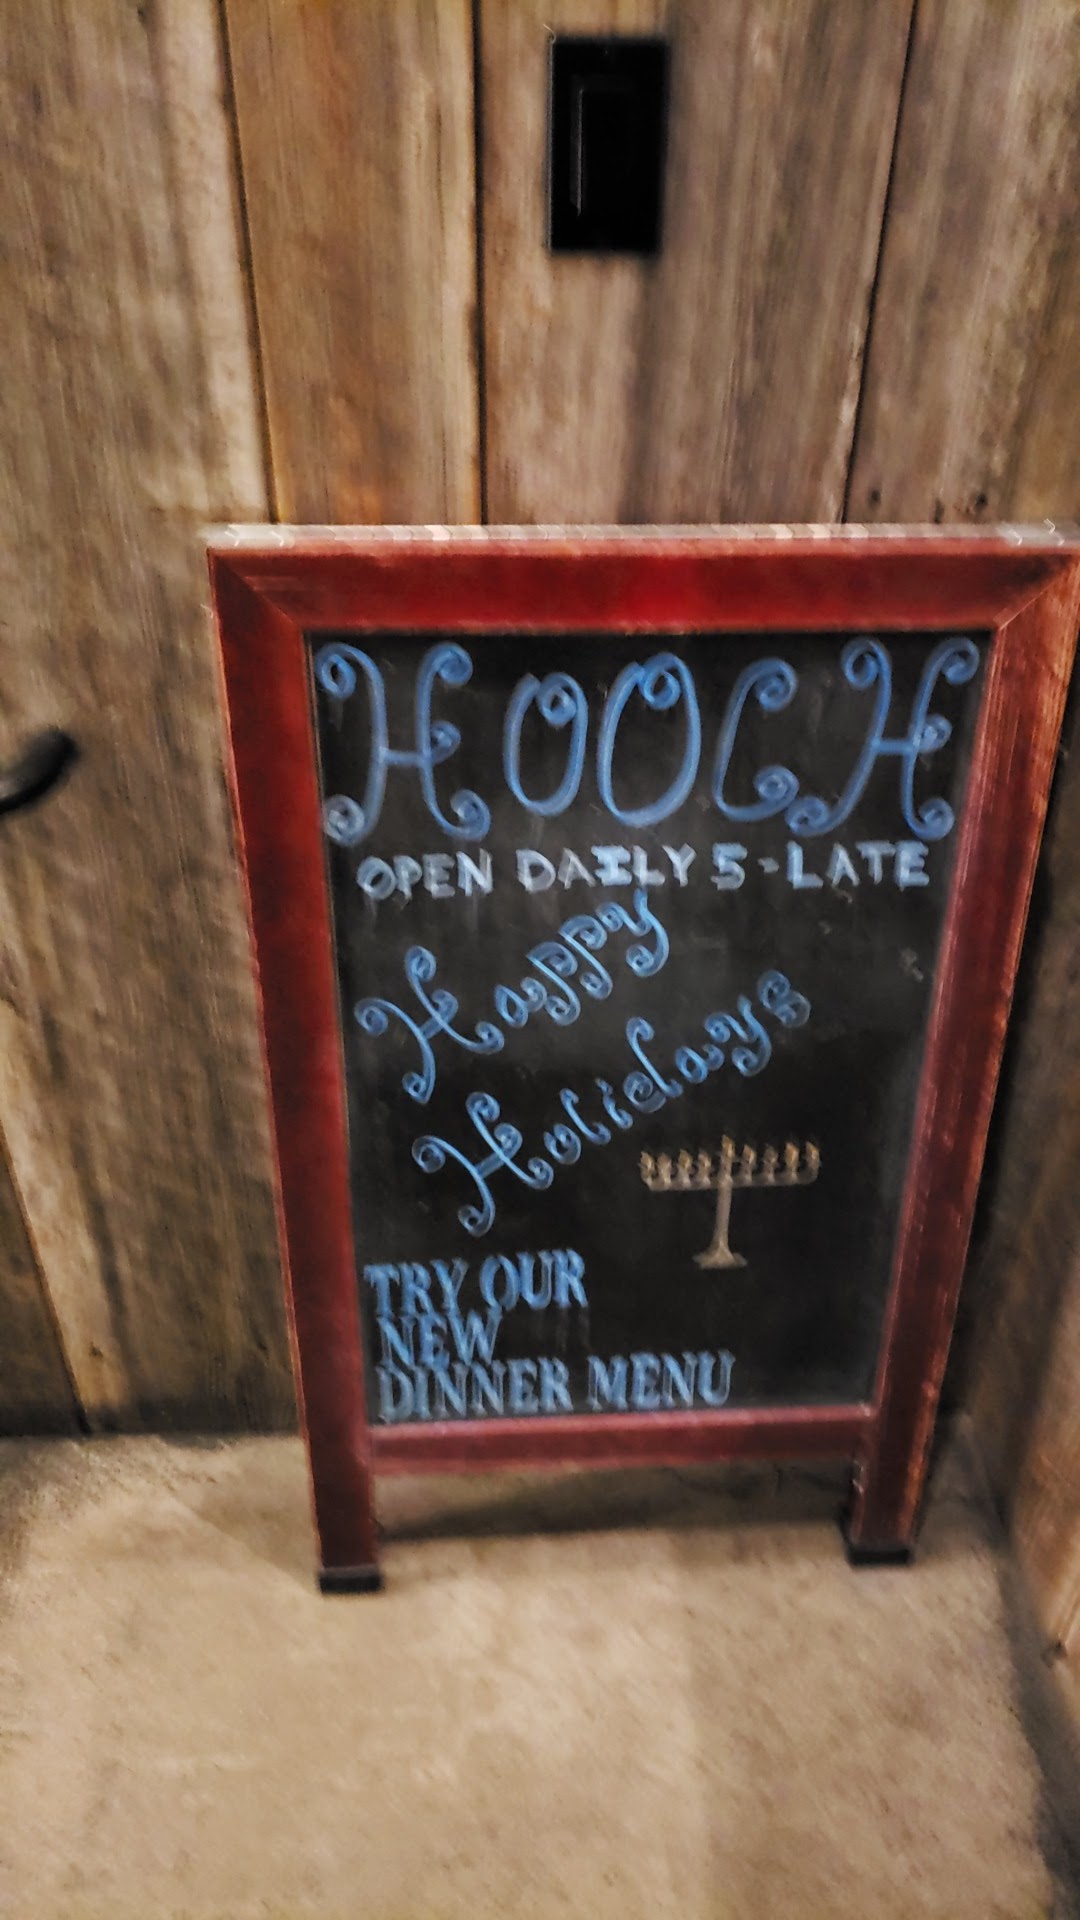 HOOCH
OPEN DAILY 5-LATE
Happy
Holidays
TRY OUR
NEW
DINNER MENU